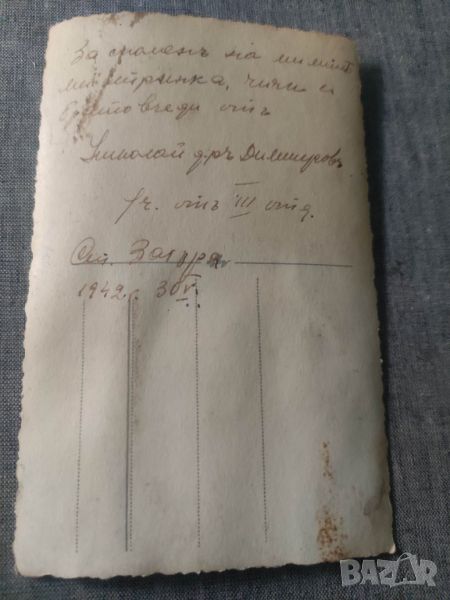 За споменъ на милит
ми стринка, чичи и
братовчеди отъ
Николай д-ръ Димитровъ
Iч. отъ III отд.
Ст. Загора
1942 г. 30 V.
BAZAR